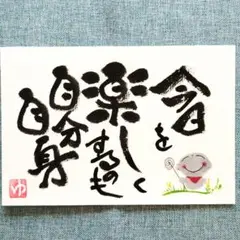 今日を
楽しく
するのも
自分
自身
ゆ